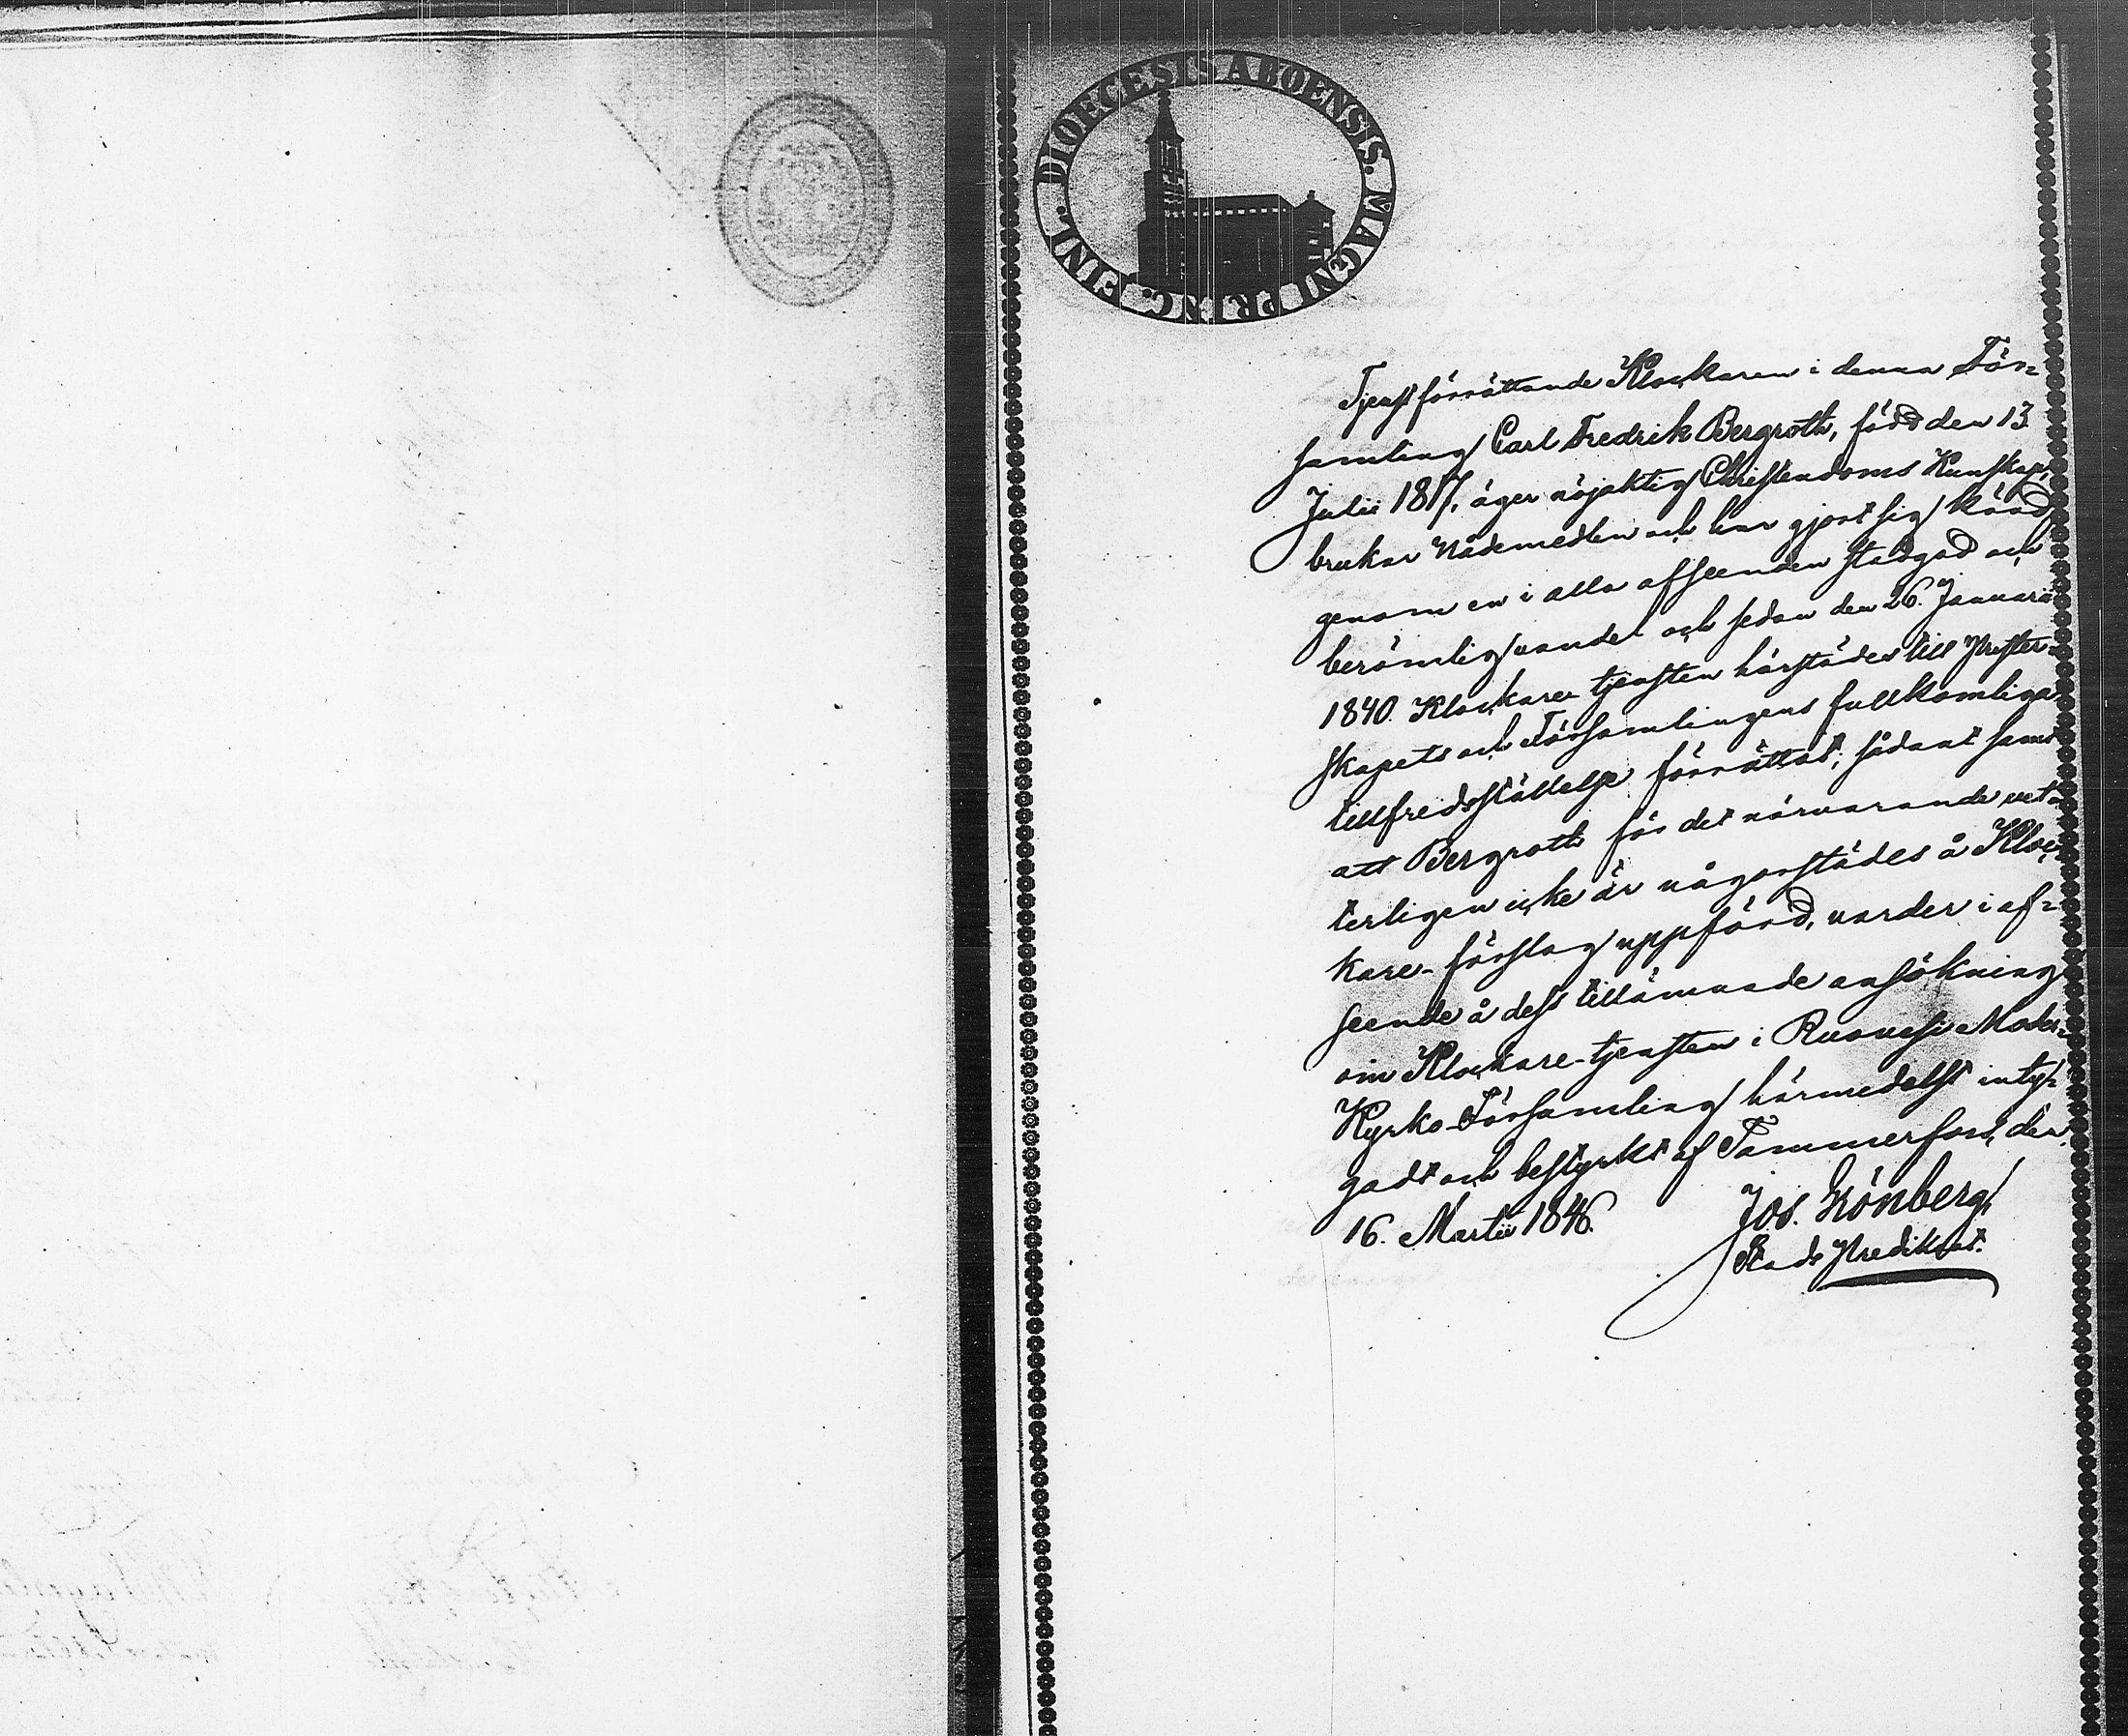 DIOECESIS ABOENSIS. MAGNI PRINC. FINL.
Tjenstförrättande Klockaren i denna För=
samling Carl Fredrik Bergroth, född den 13
Julii 1817, äger nöjaktig Christendoms Kunskap,
brukar Nådemedlen och har gjort sig känd
genom en i alla afseenden stadgad och
berömlig vandel och sedan den 26. Januarii
1840. Klockare tjensten härstädes till Prester=
skapets och Församlingens fullkomliga
tillfredsställelse förrättat; sådant samt
att Bergroth för det närvarande vet=
terligen icke är någorstädes å Kloc=
kare-förslag uppförd, varder i af=
seende å dess tillämnade ansökning
om Klockare-tjensten i Ruovesi Moder=
Kyrko-Församling härmedelst inty=
gadt och bestyrkt af Tammerfors, den
16. Martii 1846.
Jos. Grönberg
Stads Predikant.